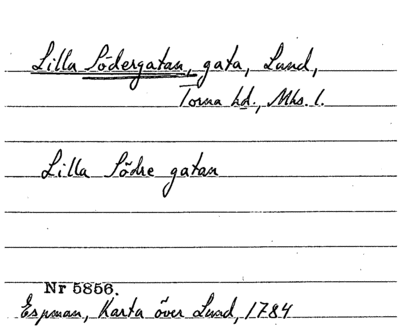 Lilla Södergatan, gata, Lund,
Torna hd., Mhs. l.
Lilla Södre gatan
Nr 5856.
Espman, Karta över Lund, 1784